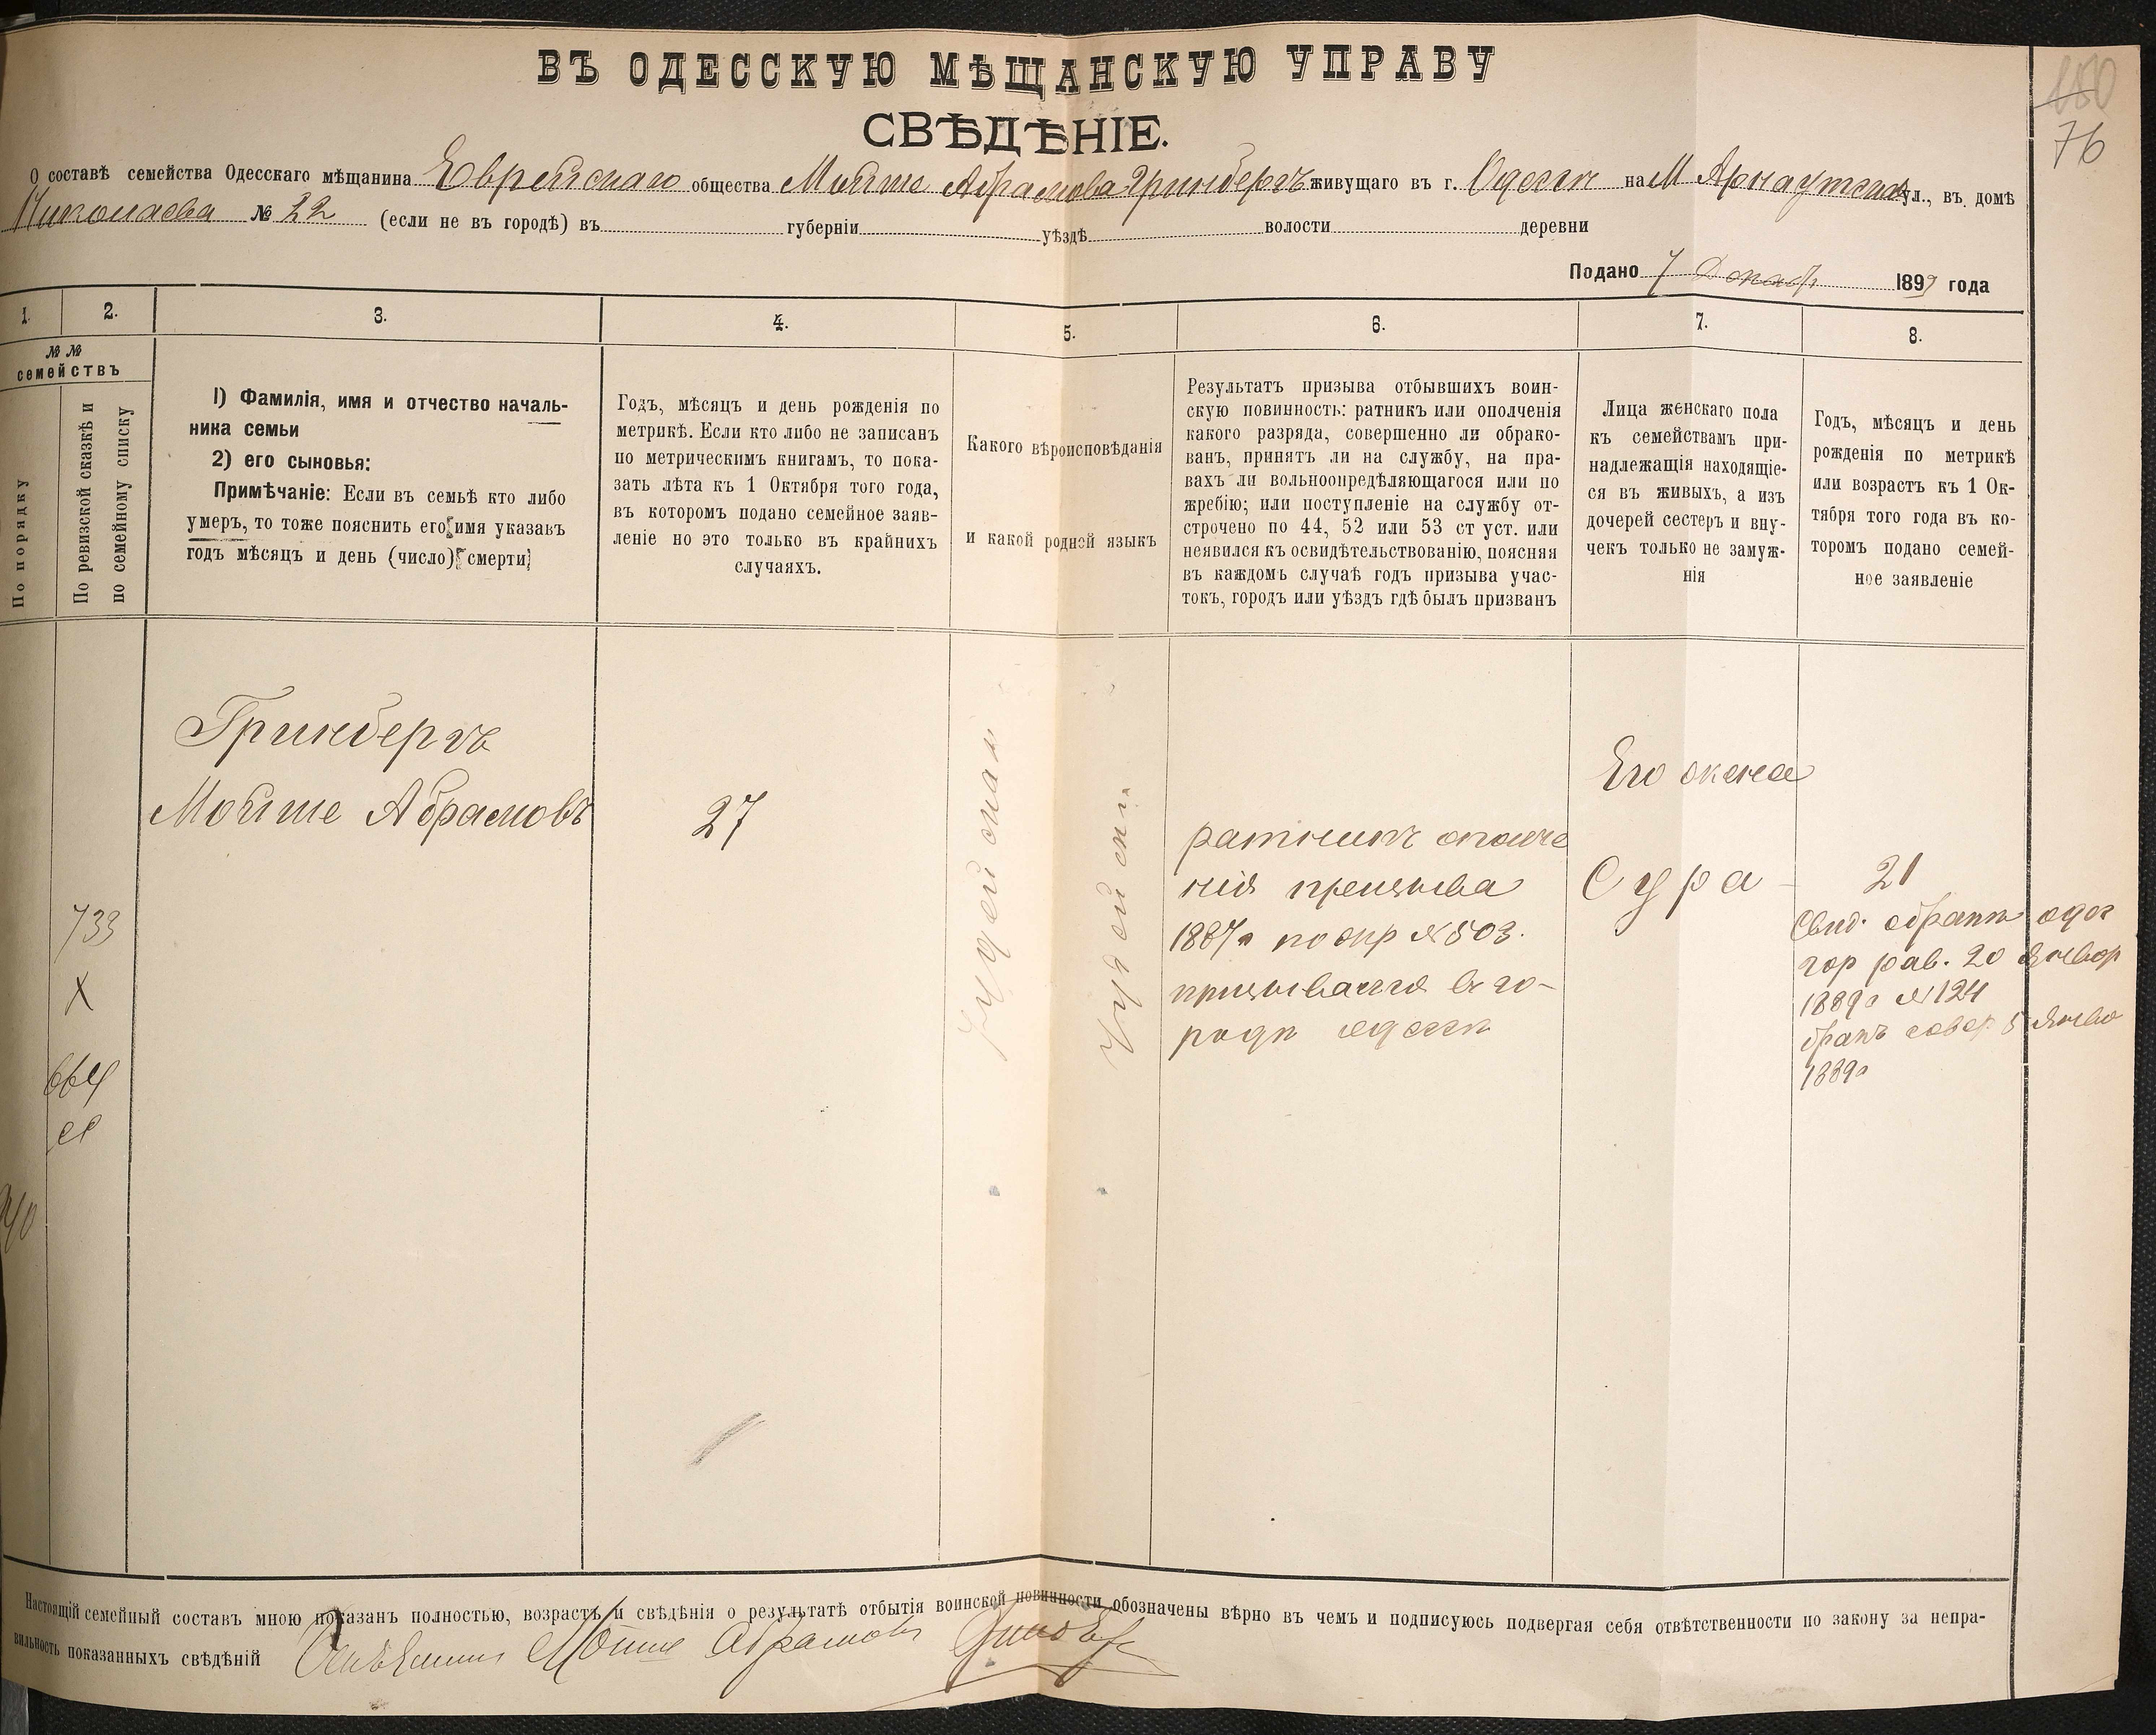 ВЪ ОДЕССКУЮ МѢЩАНСКУЮ УПРАВУ
СВѢДѢНІЕ.
150
76
О составѣ семейства Одесскаго мѣщанина Еврейскаго общества Мойше Абрамова Гринбергъ живущаго въ г. Одессѣ на М Арнаутской ул., въ домѣ
Николаева № 22 (если не въ городѣ) въ губерніи уѣздѣ волости деревни
Подано 7 Декабр 189 года
1. 2. 3. 4. 5. 6. 7. 8.
№ №
семействъ
По порядку
По ревизской сказкѣ и
по семейному списку
1) Фамилія, имя и отчество началь-
ника семьи
2) его сыновья:
Примѣчаніе: Если въ семьѣ кто либо
умеръ, то тоже пояснить его имя указавъ
годъ мѣсяцъ и день (число) смерти
Годъ, мѣсяцъ и день рожденія по
метрикѣ. Если кто либо не записанъ
по метрическимъ книгамъ, то пока-
зать лѣта къ 1 Октября того года,
въ которомъ подано семейное заяв-
леніе но это только въ крайнихъ
случаяхъ.
Какого вѣроисповѣданія
и какой родной языкъ
Результатъ призыва отбывшихъ воин-
скую повинность: ратникъ или ополченія
какого разряда, совершенно ли обрако-
ванъ, принятъ ли на службу, на пра-
вахъ ли вольноопредѣляющагося или по
жребію; или поступленіе на службу от-
строчено по 44, 52 или 53 ст уст. или
неявился къ освидѣтельствованію, поясняя
въ каждомъ случаѣ годъ призыва учас-
токъ, городъ или уѣздъ гдѣ былъ призванъ
Лица женскаго пола
къ семействамъ при-
надлежащія находящіе-
ся въ живыхъ, а изъ
дочерей сестеръ и вну-
чекъ только не замуж-
нія
Годъ, мѣсяцъ и день
рожденія по метрикѣ
или возрастъ къ 1 Ок-
тября того года въ ко-
торомъ подано семей-
ное заявленіе
733
X
664
Гринбергъ
Мойше Абрамовъ
27
Іудейская
Іудейскій
ратникъ ополче
нія призыва
1887г по жер №503.
призывался въ го-
родѣ Одессѣ
Его жена
Сура
21
Свид. о бракѣ одес
гор рав. 20 Январ
1889г №124
бракъ совер 5 Янва
1889г
Настоящій семейный составъ мною показанъ полностью, возрастъ и свѣдѣнія о результатѣ отбытія воинской повинности обозначены вѣрно въ чемъ и подписуюсь подвергая себя отвѣтственности по закону за непра-
вильность показанныхъ свѣдѣній Мойше Абрамовъ Гринбергъ